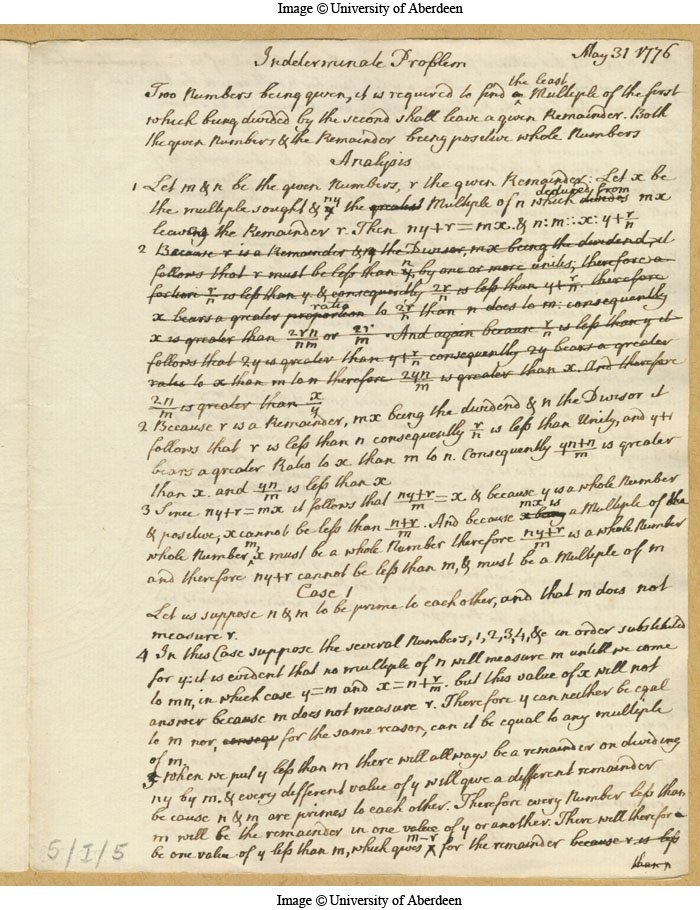 Image © University of Aberdeen
May 31 1776
Indeterminate Problem
the least
Two Numbers being given, it is required to find a Multiple of the first
which being divided by the second shall leave a given Remainder. Both
the given Numbers & the Remainder being positive whole Numbers
Analysis
1 Let m & n be the given Numbers, r the given Remainder: Let x be
the multiple sought & ny the greatest Multiple of n which divides deducted from mx
leaving the Remainder r. Then ny+r=mx. & n:m::x:y+r/n
2 Because r is a Remainder & n the Divisor, mx being the dividend, it
follows that r must be less than n by one or more units, therefore a
fortiori r/n is less than y. & consequently 2r/n is less than y+r/n. therefore
x bears a greater proportion ratio to 2r/n than n does to m: consequently
x is greater than 2rn/nm or 2r/m. And again because r/n is less than y it
follows that 2y is greater than y+r/n consequently 2y bears a greater
ratio to x than m to n therefore 2yn/m is greater than x. And therefore
2n/m is greater than x/y
2 Because r is a Remainder, mx being the dividend & n the Divisor it
follows that r is less than n consequently r/n is less than Unity, and y+1
bears a greater Ratio to x than m to n. Consequently yn+n/m is greater
than x. and yn/m is less than x
3 Since ny+r=mx it follows that ny+r/m=x. & because y is a whole Number
& positive, x cannot be less than n+r/m. And because x being mx is a Multiple of the
whole Number m, x must be a whole Number therefore ny+r/m is a whole Number
and therefore ny+r cannot be less than m, & must be a Multiple of m
Case 1
Let us suppose n & m to be prime to each other, and that m does not
measure r.
4 In this Case suppose the several Numbers, 1, 2, 3, 4, &c in order substituted
for y: it is evident that no multiple of n will measure m untill we come
to mn, in which case y=m and x=n+r/m. but this value of x will not
answer because m does not measure r. Therefore y can neither be eqal
to m nor, consequ for the same reason, can it be equal to any multiple
of m.
5 When we put y less than m there will allways be a remainder on dividing
ny by m. & every different value of y will give a different remainder
be cause n & m are primes to each other. Therefore every Number less than
m will be the remainder in one value of y or another. There will therefore
be one value of y less than m, which gives m-r for the remainder because r is less
than n
5/I/5
Image © University of Aberdeen